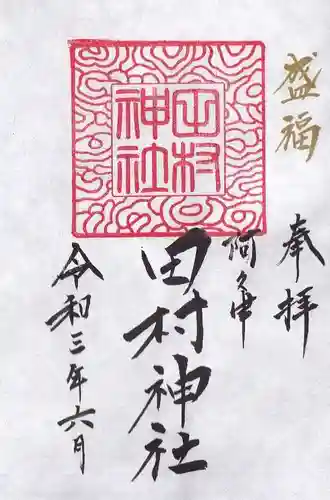 盛福
奉拝
阿久津
田村神社
田村神社
令和三年六月